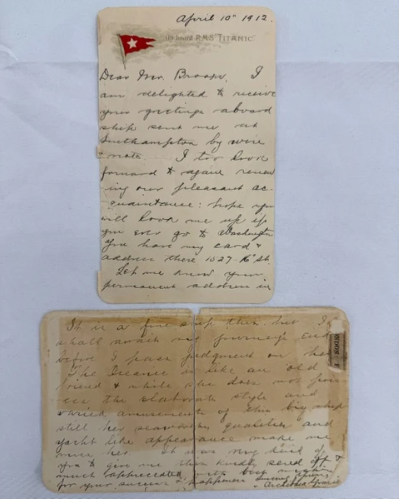 April 10th 1912.
On board R.M.S. "TITANIC"
Dear Mr. Brooks, I
am delighted to receive
your greetings aboard
ship sent me at
Southampton by
note. I too look
forward to again renew
ing our pleasant ac-
quaintance; hope you
will look me up if
you ever go to Washington
You have my card &
address there 1527. 16th St
Let me know your
permanent address in
It is a fine ship this, but I
shall await my journeys end
before I pass judgment on her
The Oceanic is like an old
friend & while she does not
the elaborate style and
varied amusements of this big ship
still her seaworthy qualities and
yacht like appearance make me
miss her. It was very kind of
you to give me this kindly send off &
much appreciated
for your success & happiness
Archibald Gracie